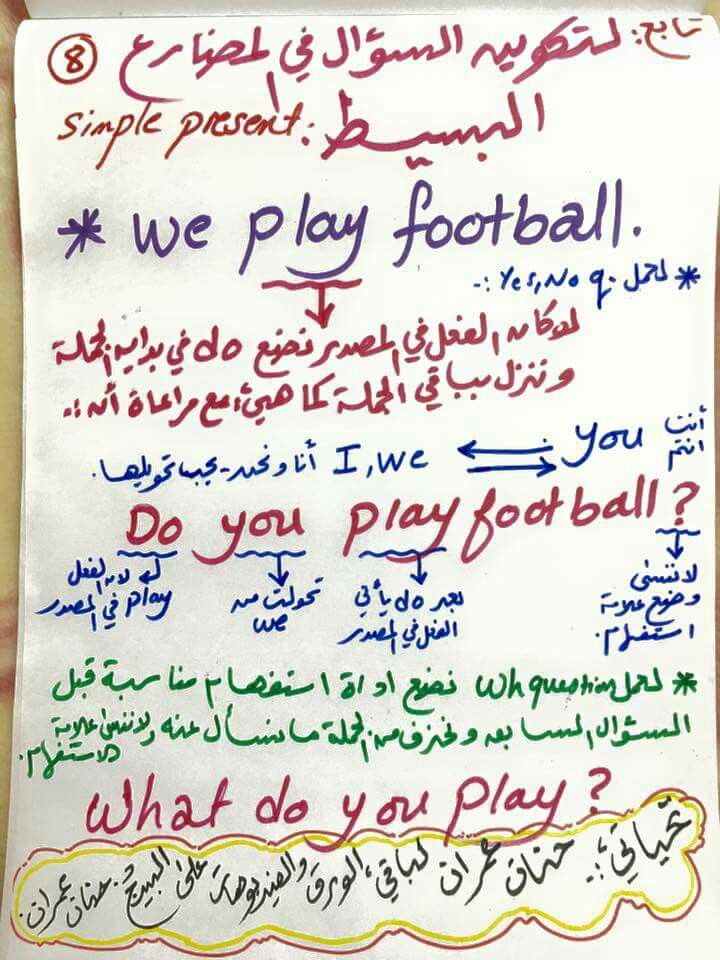 تابع: لتكوين السؤال في المضارع
8
البسيط: simple present
* We play football.
* لعمل Yes, No q. :-
لو كان الفعل في المصدر نضع do في بداية الجملة
وننزل بباقي الجملة كما هي، مع مراعاة أنه :-
أنت
انتم
you
I, we أنا ونحن - يجب تحويلها.
Do you play football?
لان الفعل
play في المصدر
تحولت من
we
بعد do يأتي
الفعل في المصدر
لا ننسى
وضع علامة
استفهام.
* لعمل Wh question نضع اداة استفهام مناسبة قبل
السؤال السابق ونحذف من الجملة ما نسأل عنه ولا ننسى علامة
الاستفهام.
What do you play?
تحياتي :- حنان عمران لباقي الورق والفيديوهات على البيدج: حنان عمران.